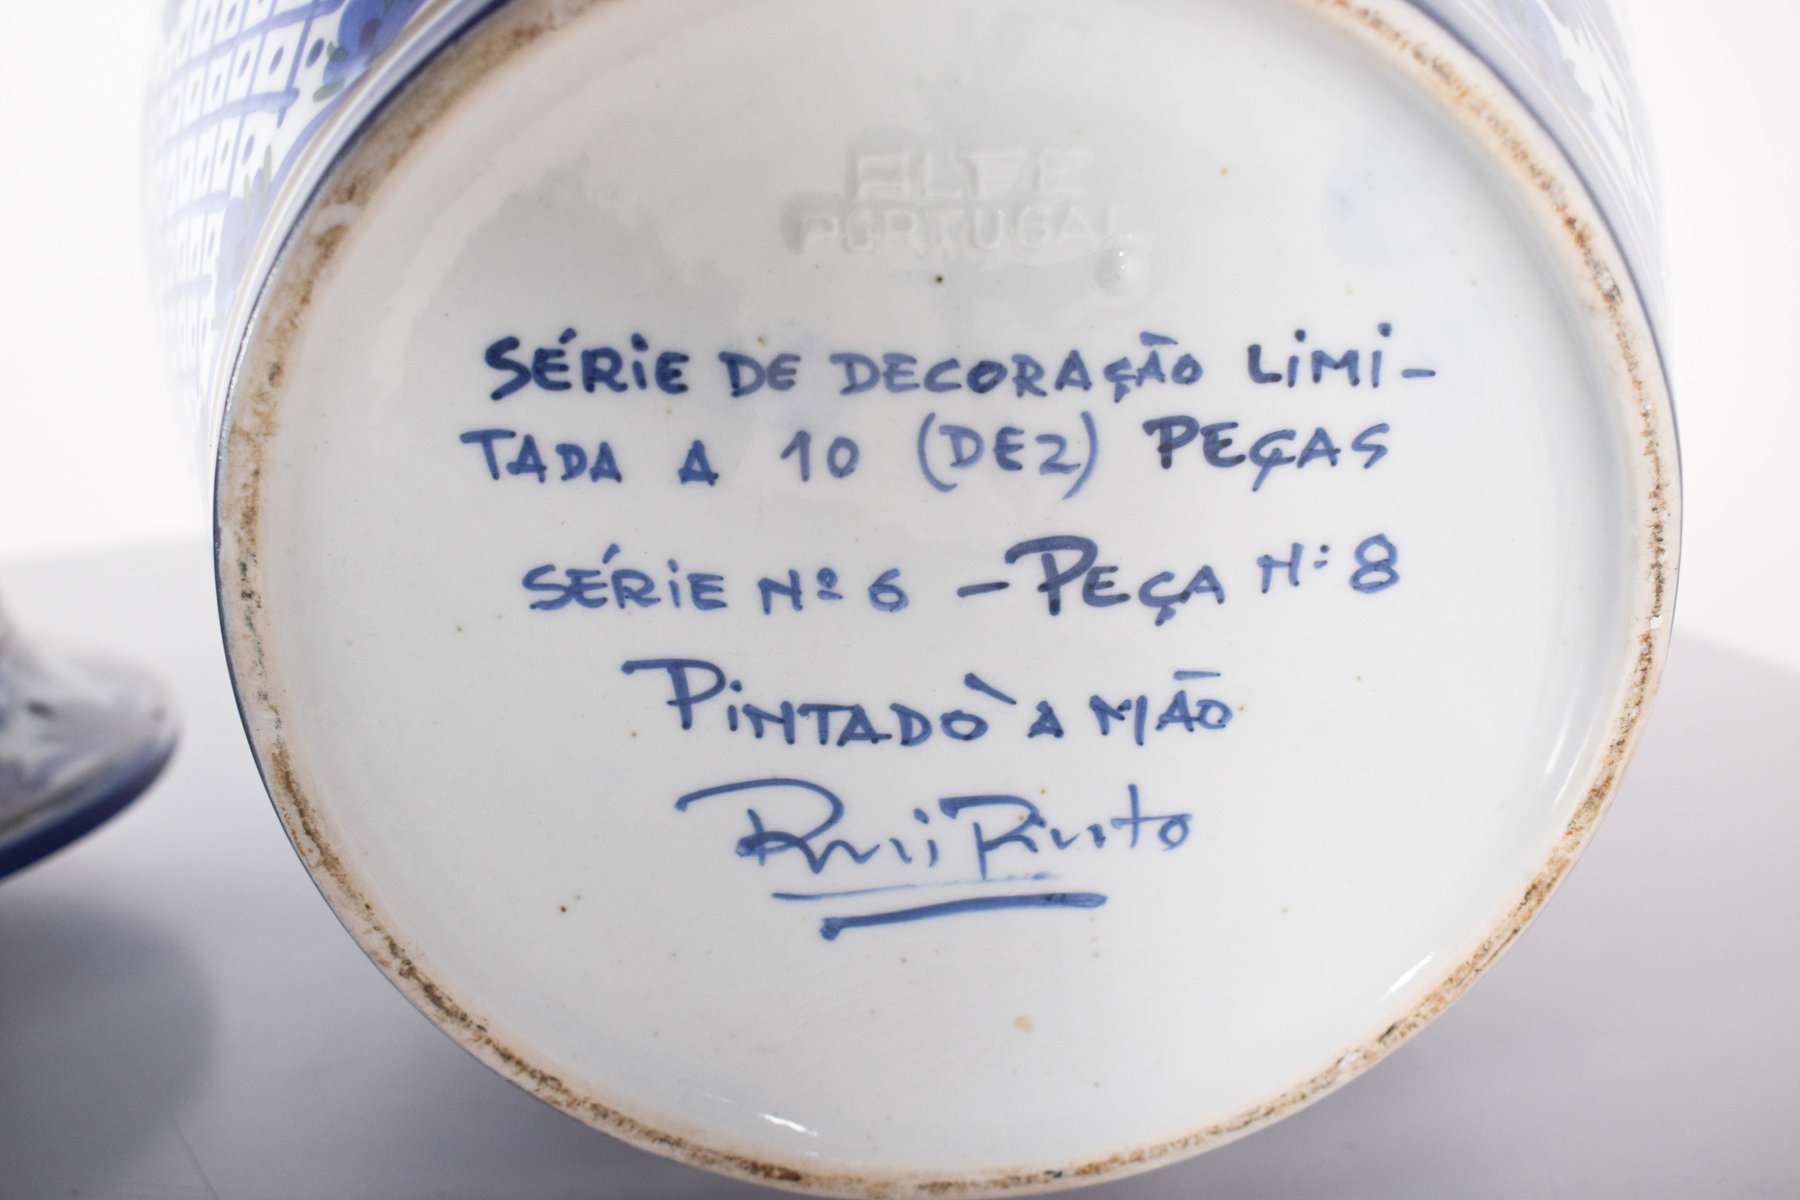 ALFE
PORTUGAL
SÉRIE DE DECORAÇÃO LIMI-
TADA A 10 (DEZ) PEÇAS
SÉRIE Nº 6 - PEÇA N: 8
PINTADO À MÃO
Rui Pinto